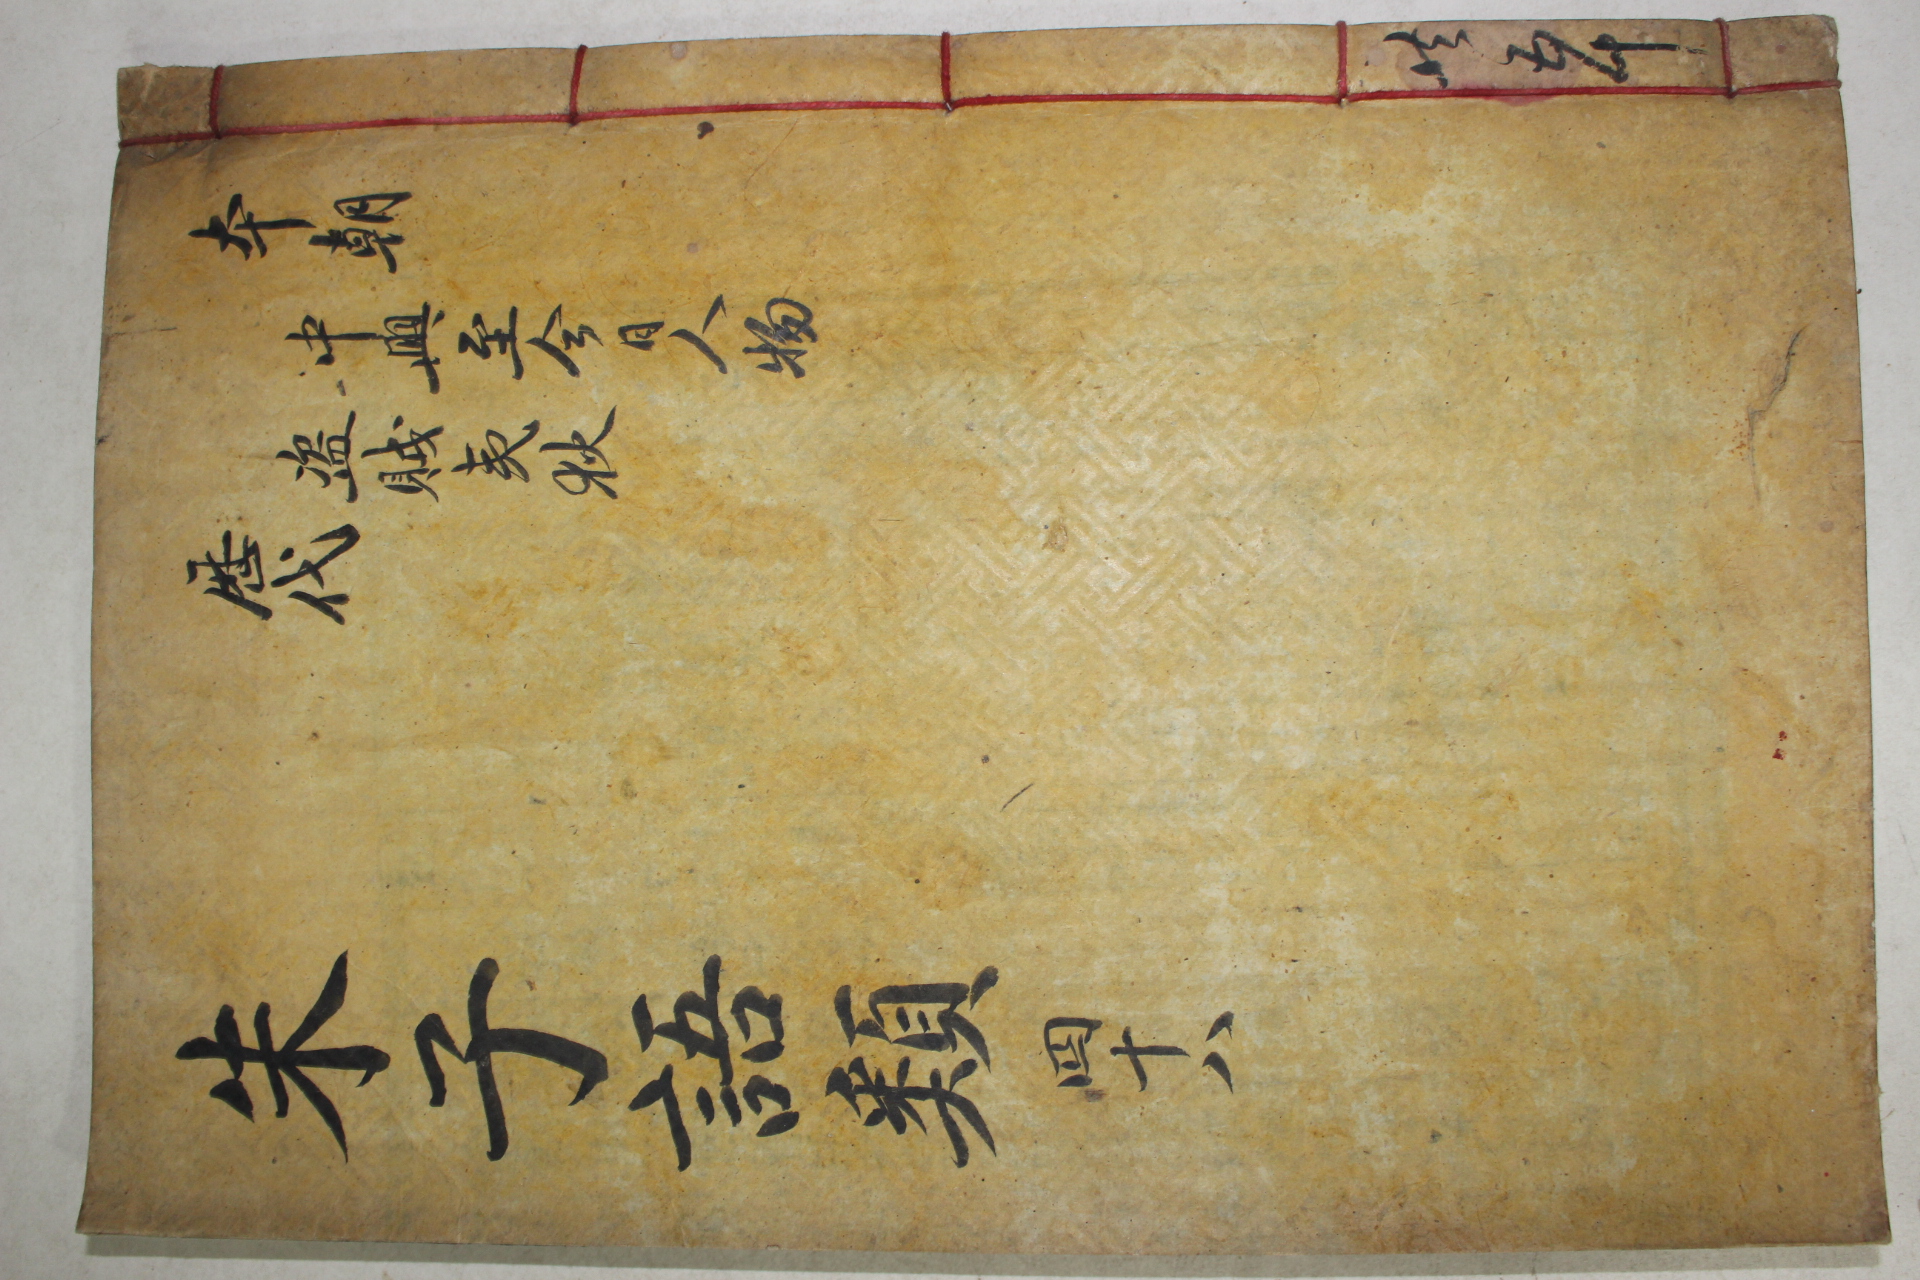 本朝
中興至今日人物
盗賊夷狄
歷代
朱子語類 四十八
共五十